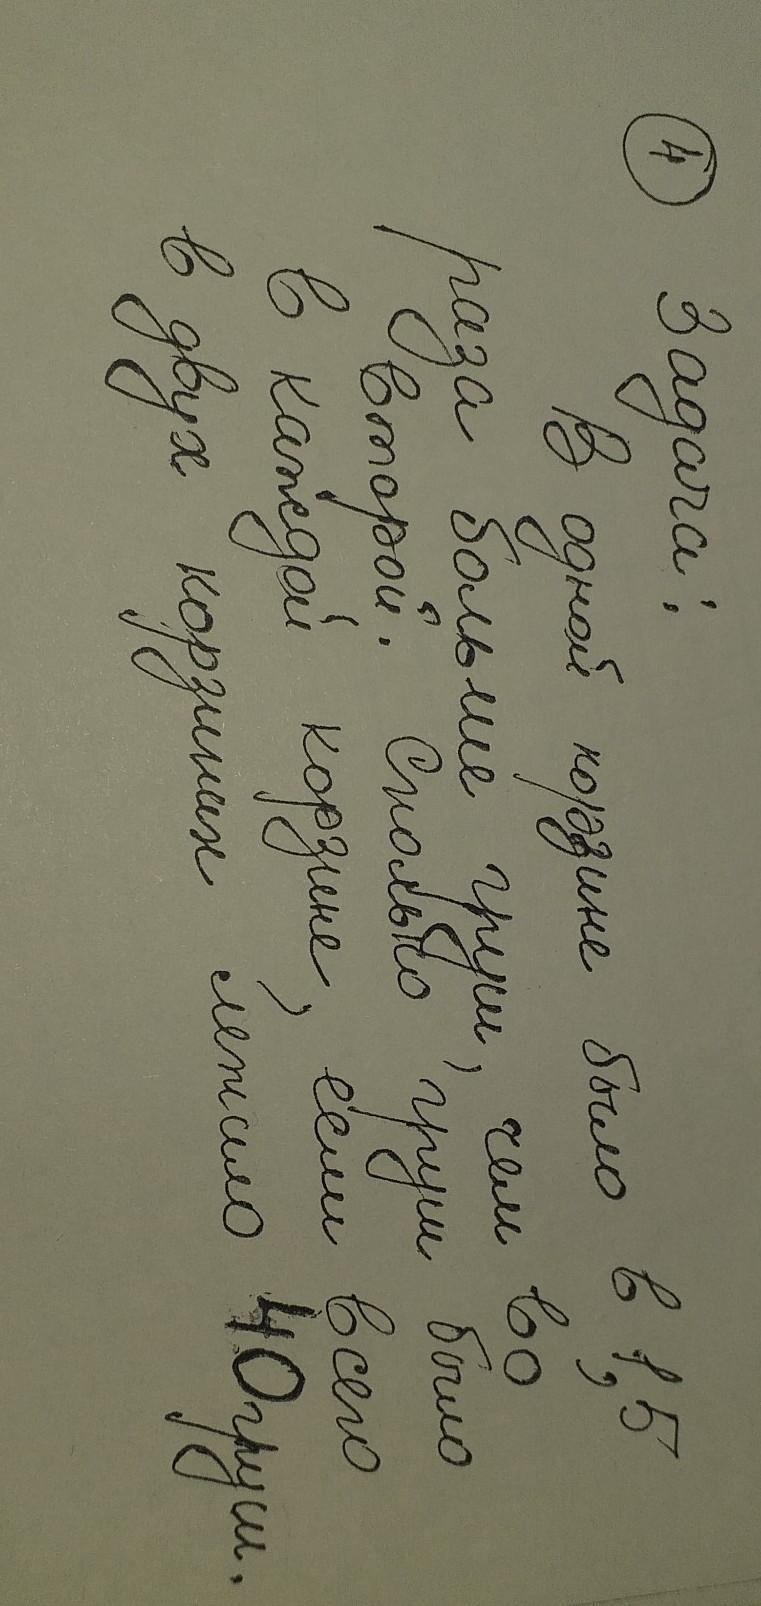 4 Задача:
В одной корзине было в 1,5
раза больше груш, чем во
второй. Сколько груш было
в каждой корзине, если всего
в двух корзинах лежало 40 груш.